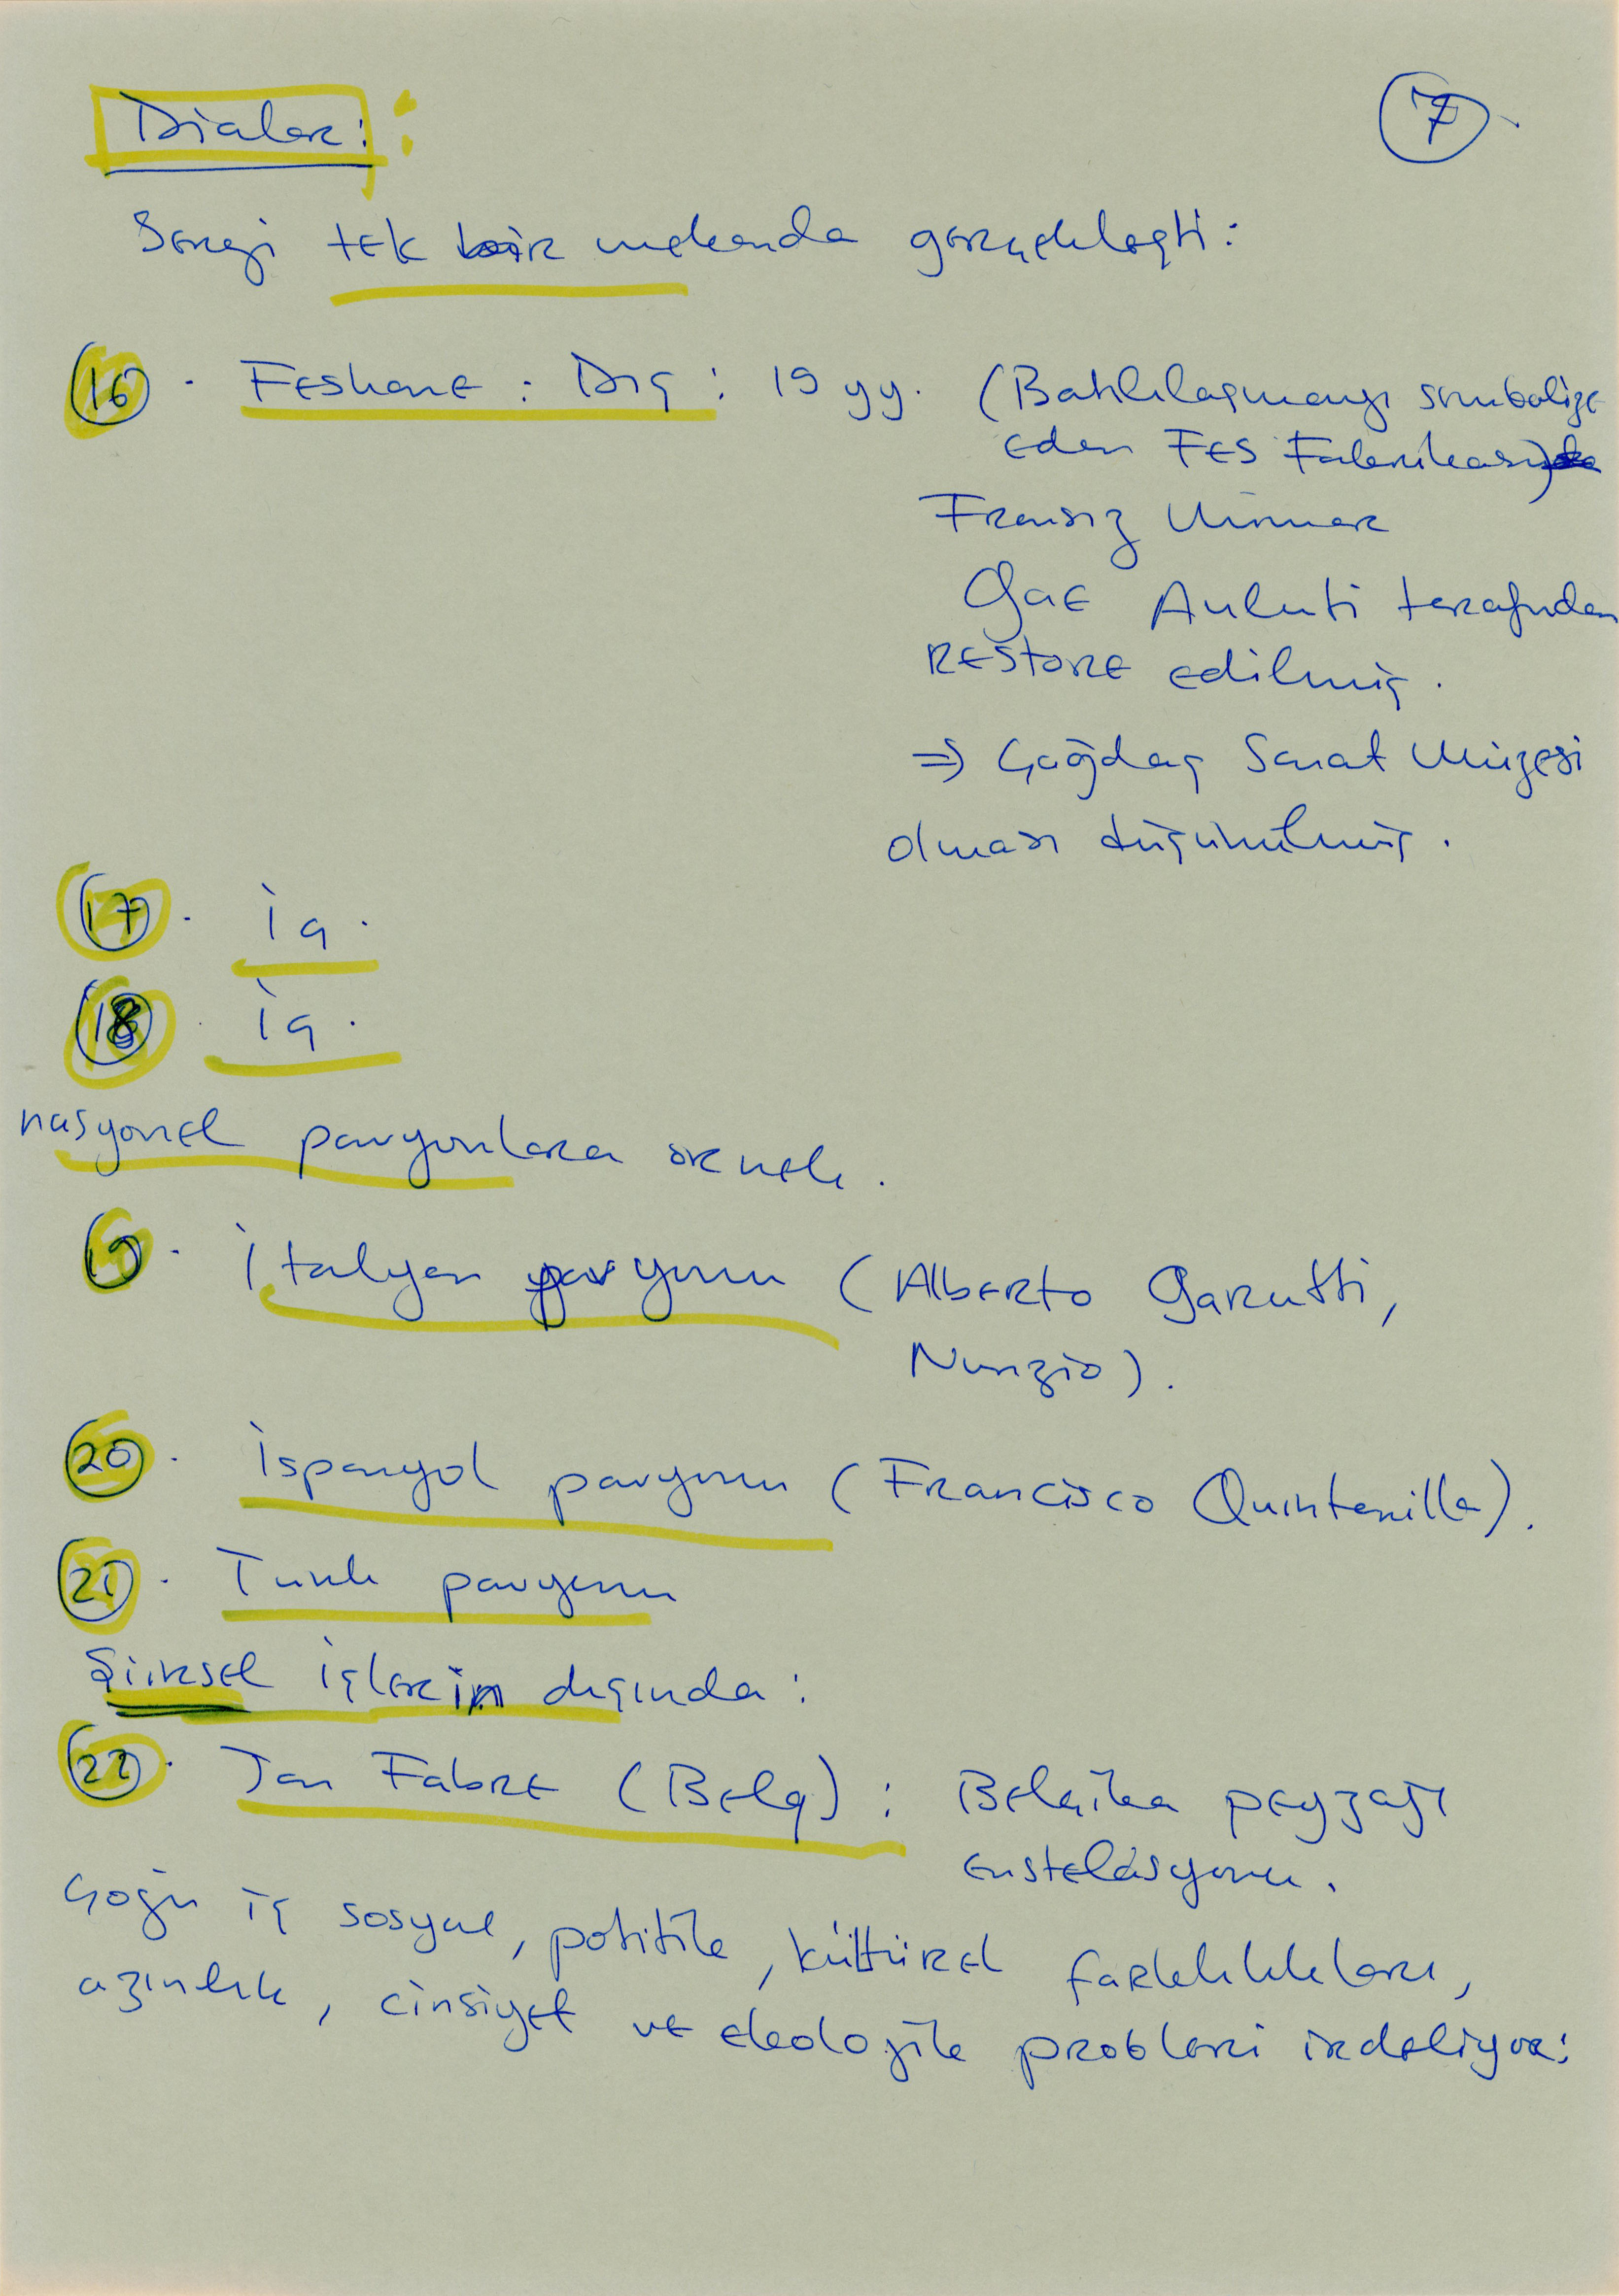 Dialar:
7
Sergi tek bir mekanda gerçekleşti:
16. Feshane : Dış : 19 yy. (Batılılaşmayı sembolize
eden Fes Fabrikası)
Fransız Mimar
Gae Aulenti tarafından
restore edilmiş.
⇒ Çağdaş Sanat Müzesi
olması düşünülmüş.
17. İç.
18. İç.
nasyonel pavyonlara örnek.
19. İtalyan pavyonu (Alberto Garutti,
Nunzio).
20. İspanyol pavyonu (Francisco Quintanilla).
21. Türk pavyonu
Şiirsel işlerin dışında:
22. Jan Fabre (Belç) : Belçika peyzajı
enstelasyonu.
Çoğu iş sosyal, politik, kültürel farklılıkları,
azınlık, cinsiyet ve ekolojik probleri irdeliyor: